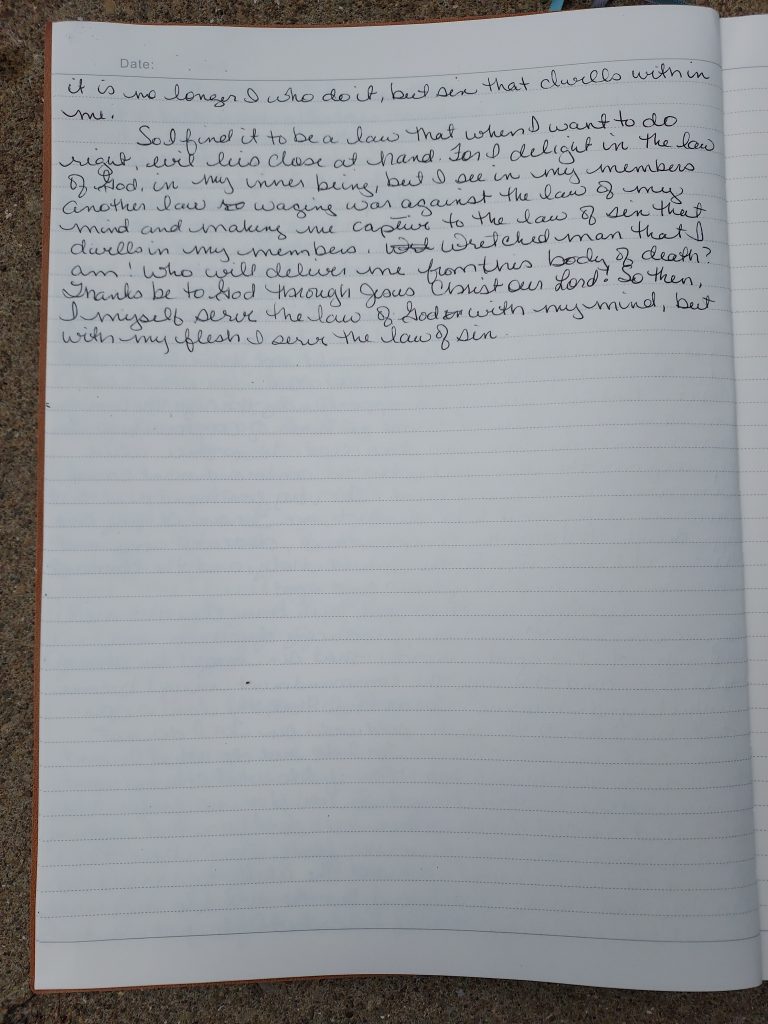 Date:
it is no longer I who do it, but sin that dwells within
me.
So I find it to be a law that when I want to do
right, evil lies close at hand. For I delight in the law
of God, in my inner being, but I see in my members
another law waging war against the law of my
mind and making me captive to the law of sin that
dwells in my members. Wretched man that I
am! Who will deliver me from this body of death?
Thanks be to God through Jesus Christ our Lord! So then,
I myself serve the law of God with my mind, but
with my flesh I serve the law of sin